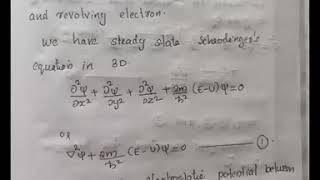 and revolving electron.
We have steady state Schrodinger's
equation in 3D
∂²ψ/∂x² + ∂²ψ/∂y² + ∂²ψ/∂z² + 2m/ħ² (E-U)ψ=0
or
∇²ψ + 2m/ħ² (E-U)ψ=0 ——— ①.
potential between